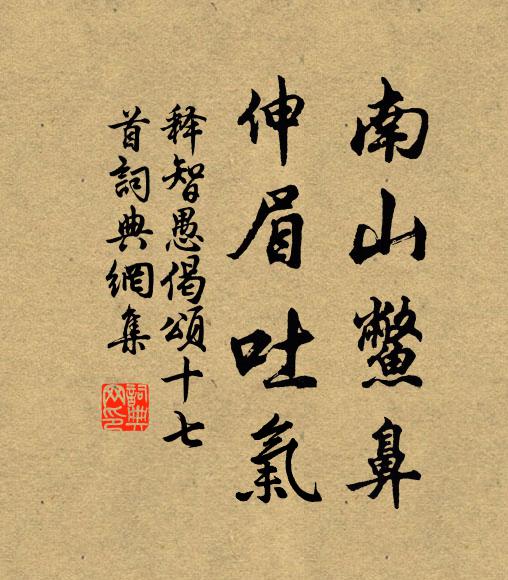 南山鱉鼻
伸眉吐氣
释智愚偈頌十七
首詞典網集
詞典网印